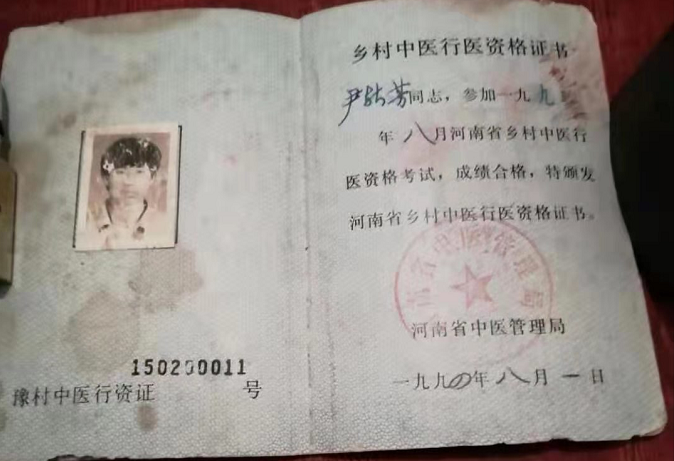 150200011
豫村中医行资证 号
乡村中医行医资格证书
尹 芳同志，参加一九九
年八月河南省乡村中医行
医资格考试，成绩合格，特颁发
河南省乡村中医行医资格证书。
河南省中医管理局
河南省中医管理局
一九九四年八月一日